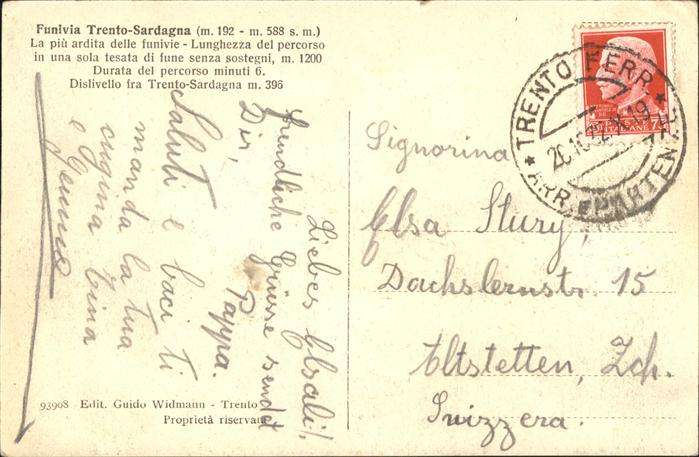 Funivia Trento-Sardagna (m. 192 - m. 588 s. m.)
La più ardita delle funivie - Lunghezza del percorso
in una sola tesata di fune senza sostegni, m. 1200
Durata del percorso minuti 6.
Dislivello fra Trento-Sardagna m. 396
Liebes Elsali!
Freundliche Grüsse sendet
Dir,
Pappa.
Saluti e baci ti
manda la tua
cugina Gina
e
TRENTO FERR
ITALIANE
Signorina
Elsa Stury,
Dachslernstr. 15
Altstetten, Zch.
Svizzera.
93908 Edit. Guido Widmann - Trento
Proprietà riservata